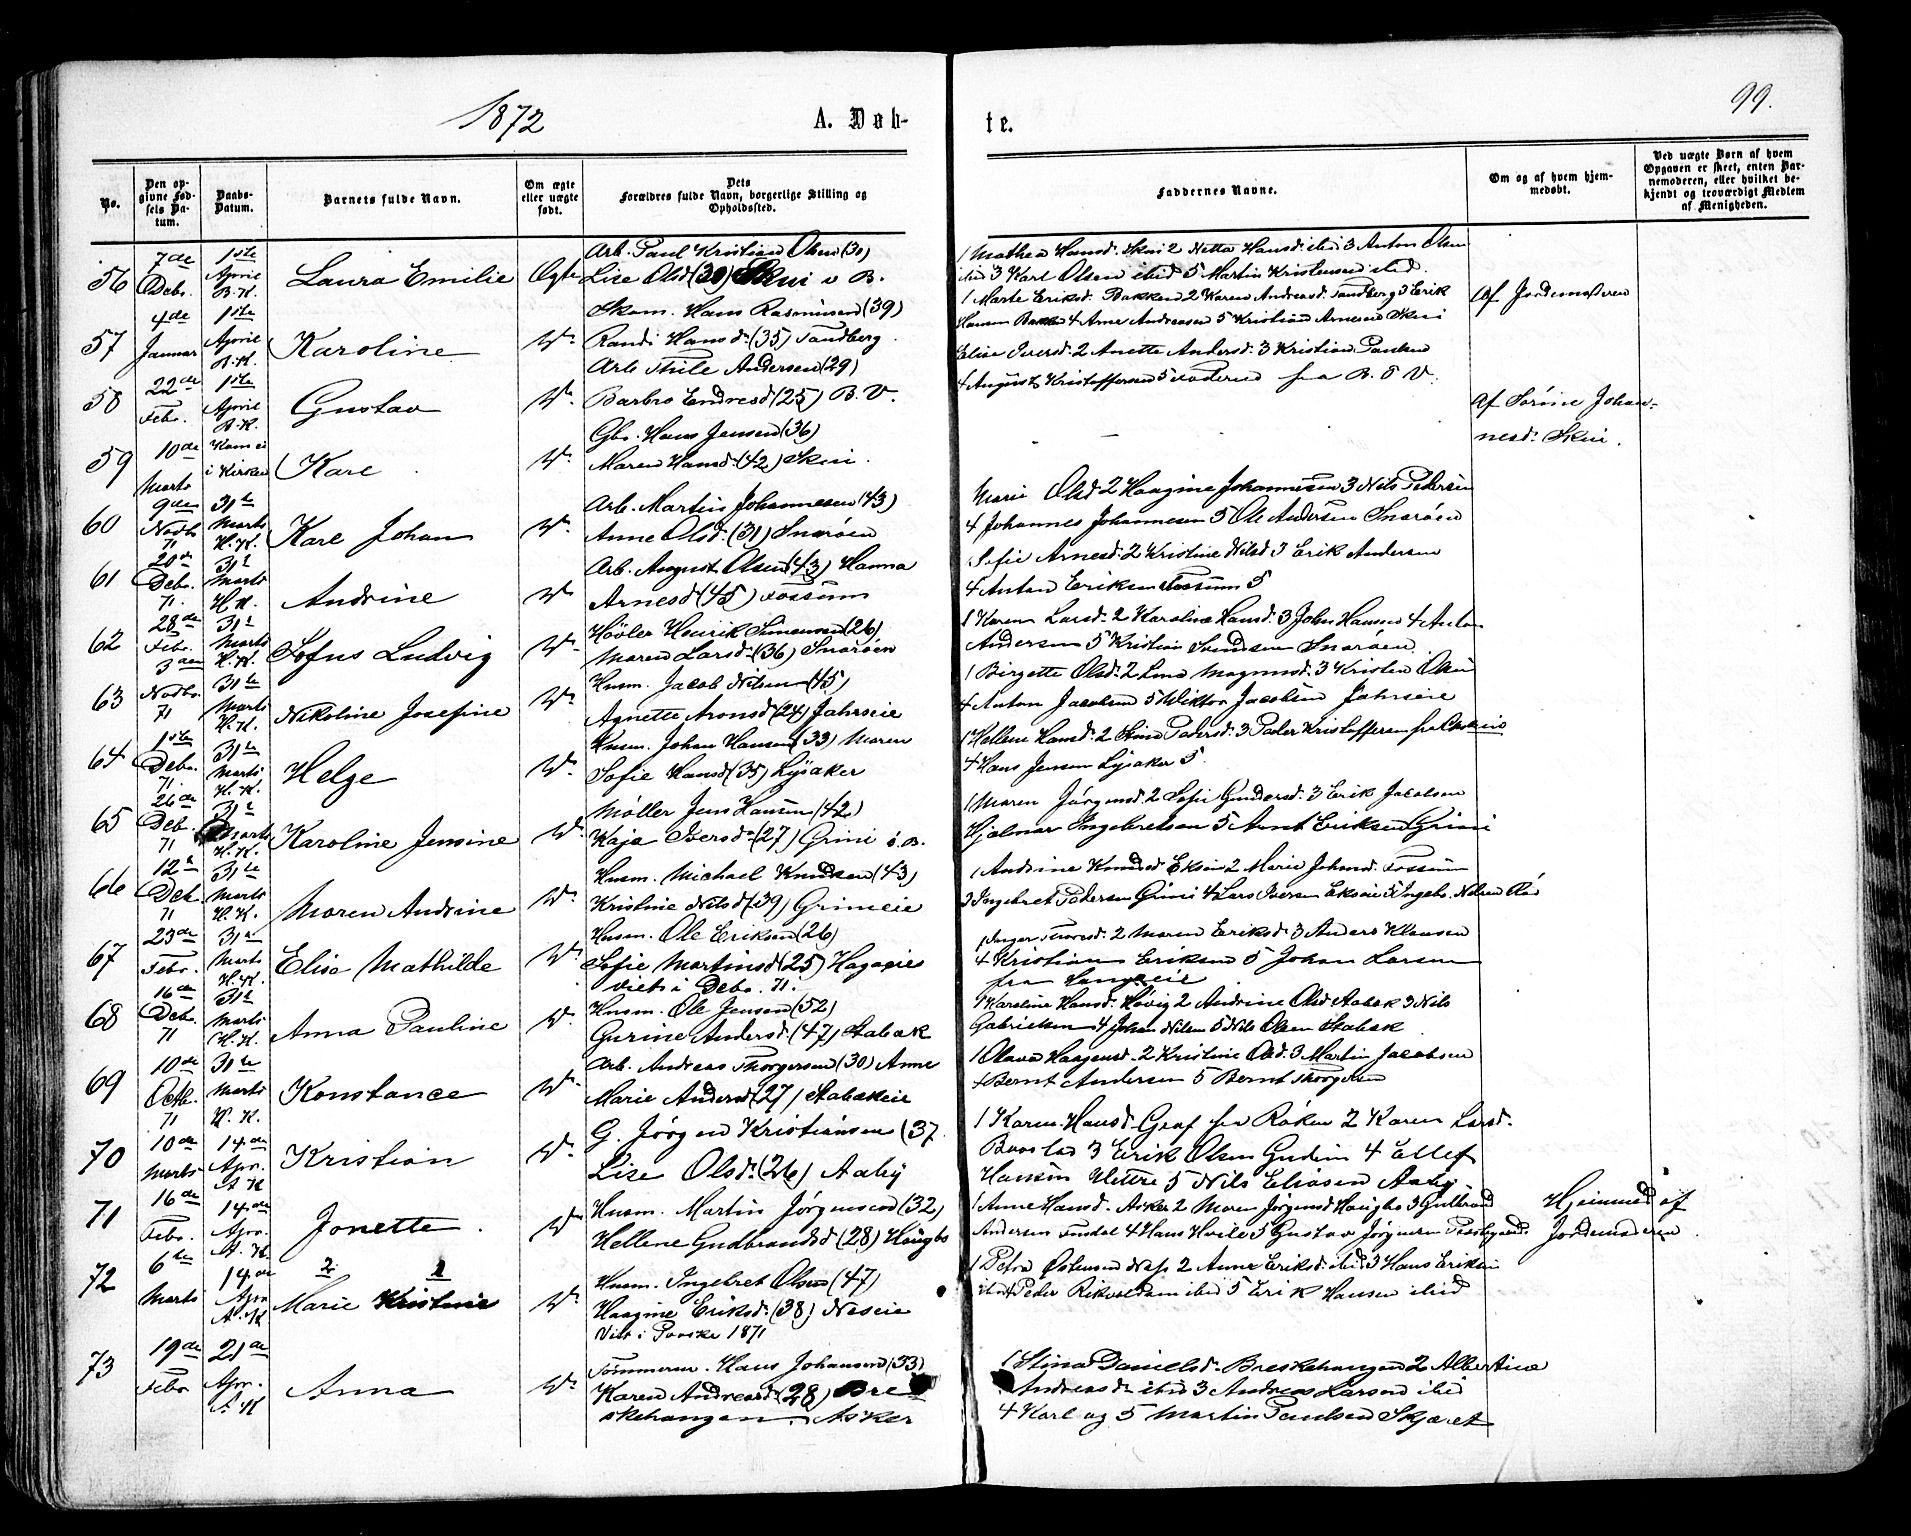 1872
A. Døb-
te.
99.
No.
Den op-
givne Fød-
sels Da-
tum.
Daabs-
Datum.
Barnets fulde Navn.
Om ægte
eller uægte
født.
Dets
Forældres fulde Navn, borgerlige Stilling og
Opholdssted.
Faddernes Navne.
Om og af hvem hjem-
medøbt.
Ved uægte Børn af hvem
Opgaven er skeet, enten Bar-
nemoderen, eller hvilket be-
kjendt og troværdigt Medlem
af Menigheden.
56
7de
Debr.
1ste
April
B.K.
Laura Emilie
Ægte
Arb. Paul Kristian Olsen (30)
Lise Olsd (30) Skui v B.
1 Mathea Hansd. Skui 2 Netta Hansd. ibid 3 Anton Olsen
ibid 3 Karl Olsen ibid 5 Martin Kristensen ibid.
57
4de
Januar
1ste
April
B.K.
Karoline
Do
Skom. Hans Rasmussen (39)
Randi Hansd. (35) Tandberg
1 Marte Eriksd. Bakken 2 Karen Andreasd. Tandberg 3 Erik
Hansen Bakken 4 Arne Andreasen 5 Kristian Arnesen Skui
Af Jordemoderen
58
22de
Febr.
1ste
April
B.K.
Gustav
Do
Arb. Thile Andersen (29)
Barbro Endresd (25) B.V.
Elise Iversd. 2 Anette Andersd. 3 Kristian Paulsen
4 August Kristoffersen 5 Faderen fra B. V.
59
10de
Marts
Kom ei
i Kirken
Karl
Do
Gbr. Hans Jensen (36)
Maren Hansd. (42) Skui.
Af Sørine Johan-
nesd. Skui.
60
9de
Novbr
71
31te
Marts
H.K.
Karl Johan
Do
Arb. Martin Johannesen (43)
Anne Olsd. (31) Snarøen
Marie Olsd 2 Haagine Johannesen 3 Nils Pedersen
4 Johannes Johannesen 5 Ole Andersen Snarøen
61
20de
Debr.
71.
31te
Marts
H.K.
Andrine
Do
Arb. August Olsen (43) Hanna
Arnesd (45) Fossum
Sofie Arnesd. 2 Kristine Nilsd 3 Erik Andersen
4 Anton Eriksen Fossum 5
62
28de
Febr.
31te
Marts
H.K.
Sofus Ludvig
Do
Høvler Henrik Simensen (26)
Maren Larsd. (36) Snarøen
1 Karen Larsd. 2 Karoline Hansd. 3 John Hansen 4 Anton
Andersen 5 Kristian Svendsen Snarøen.
63
3die
Novbr.
71
31te
Marts
H.K.
Nikoline Josefine
Do
Husm. Jacob Nilsen (45)
Agnette Aronsd (24) Jahrseie
1 Birgette Olsd. 2 Lina Magnusd. 3 Kristen Olsen
4 Anton Jacobsen 5 Wiktor Jacobsen Jahrseie
64
1ste
Debr.
71.
31te
Marts
H.K.
Helge
Do
Husm. Johan Hansen (33) Maren
Sofie Hansd (35) Lysaker
1 Hellene Hansd. 2 Stina Pedersd. 3 Peder Kristoffersen fra
4 Hans Jensen Lysaker 5.
65
26de
Debr.
71
31te
Marts
H.K.
Karoline Jensine
Do
Møller Jens Hansen (42)
Kaja Iversd. (27) Grini ø. B.
1 Maren Jørgensd. 2 Sofie Gundersd. 3 Erik Jacobsen
Hjalmar Ingebretsen 5 Arnt Eriksen Grini
66
12te
Debr.
71
31te
Marts
H.K.
Maren Andrine
Do
Husm. Michael Knudsen (43)
Kristine Nilsd (39) Grinieie
1 Andrine Knudsd Eksie 2 Marie Johansd. Fossum
3 Ingebret Pedersen Grini 4 Lars Iversen Eksie 5 Ingebr. Nilsen
67
23de
Febr.
31te
Marts
H.K.
Elise Mathilde
Do
Husm. Ole Eriksen (26)
Sofie Martinsd (25) Hagaeie
viet i Debr. 71.
1 Inger Thoresd. 2 Maren Eriksd. 3 Anders Klausen
4 Kristian Eriksen 5 Johan Larsen
fra
68
16de
Debr.
71
31te
Marts
H.K.
Anna Pauline
Do
Husm. Ole Jensen (52)
Gurine Andersd. (47) Stabæk
1 Karoline Hansd. Høvig 2 Andrine Olsd Stabæk 3 Nils
Gabrielsen 4 Johan Nilsen 5 Nils Olsen Stabæk
69
10de
Octbr.
71
31te
Marts
H.K.
Konstance
Do
Arb. Andreas Thorgersen (30) Anne
Marie Andersd (27) Stabækeie
1 Olava Haagensd. 2 Kristine Olsd. 3 Martin Jacobsen
4 Bernt Andersen 5 Bernt Thorgersen
70
10de
Marts
14de
Apr.
A K
Kristian
Do
G. Jørgen Kristiansen (37
Lise Olsd. (26) Aaby
1 Karen Hansd. Graf fra Røken 2 Karen Larsd.
Baastad 3 Erik Olsen Gudim 4 Ellef
Hansen Vettre 5 Nils Eliasen Aaby.
71
16de
Febr.
14de
Apr.
A. K
Jonette.
Do
Husm. Martin Jørgensen (32)
Hellene Gudbrandsd (28) Haugbo
1 Anne Hansd. Asker 2 Maren Jørgensd Haugbo 3 Gulbrand
Andersen 4 Hans Hvile 5 Gustav Jørgensen
Hjemmed. af
Jordemoderen.
72
6te
Marts
14de
Apr
A. K
2 1
Marie Kristine
Do
Husm. Ingebret Olsen (47)
Haagine Eriksd. (38) Neseie
Viet i Paaske 1871
1 Petra Østensen Næs 2 Anne Eriksd. ibid 3 Hans Eriksen
ibid 4 Peder Rikoldsen ibid 5 Erik Hansen ibid
73
19de
Febr
21de
Apr.
A K
Anna
Do
Tømmerm. Hans Johansen (33)
Karen Andreasd. (28) Bre
skehangen. Asker
1 Stina Danielsd. Breskehangen 2 Albertine
Andreasd. ibid 3 Andreas Larsen ibid
4 Karl og 5 Martin Paulsen Skjæret